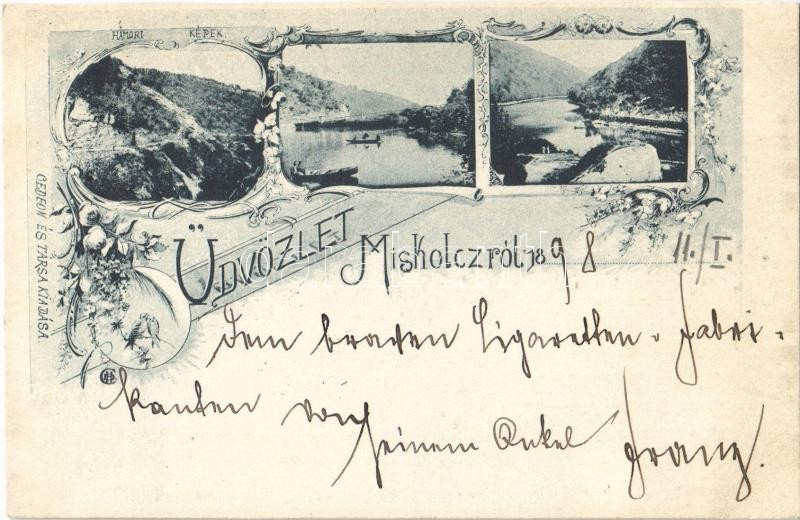 HÁMORI KÉPEK.
GEDEON ÉS TÁRSA KIADÁSA.
ÜDVÖZLET MISKOLCZRÓL, 1898 11./I.
Dem braven Cigaretten-Fabri-
kanten von
seinem Onkel Franz.